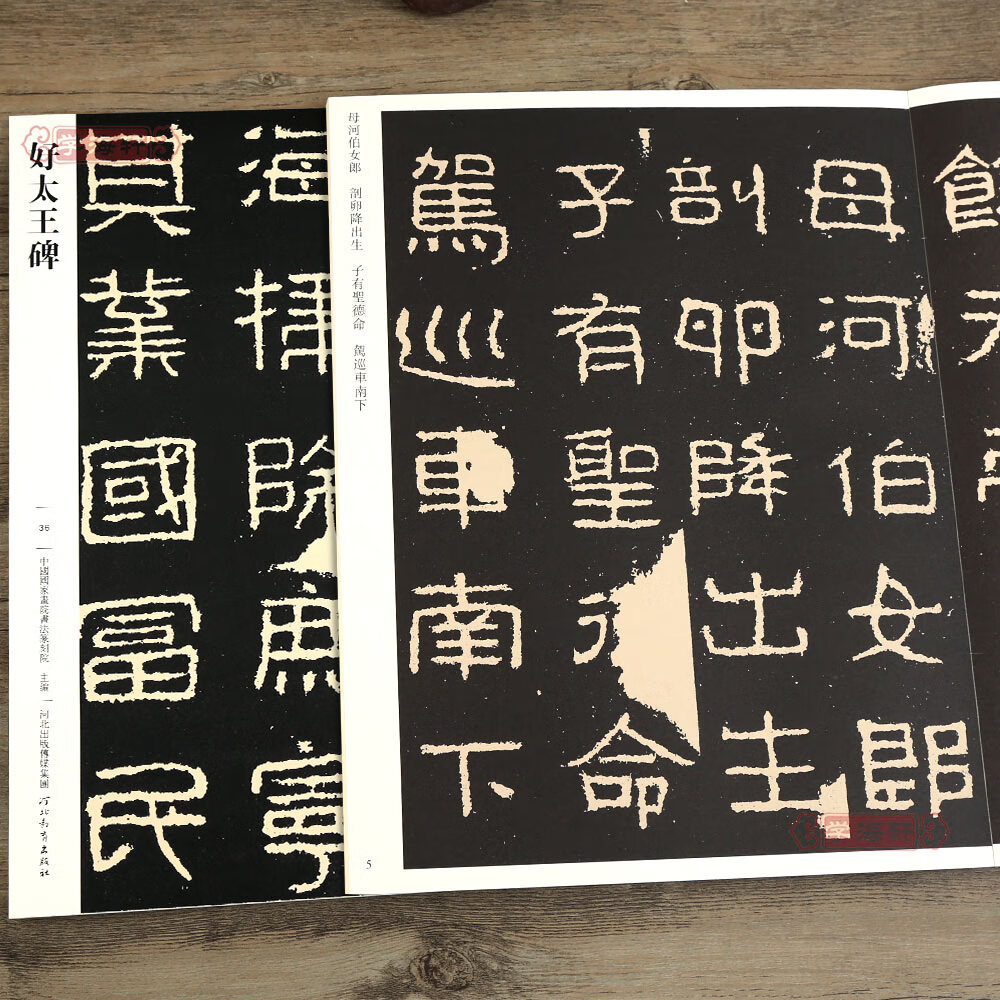 好太王碑
36
中國國家畫院書法篆刻院 主編
河北出版傳媒集團 河北教育出版社
海掃除庶寧
其業國富民
母河伯女郎 剖卵降出生 子有聖德命 駕巡車南下
母河伯女郎
剖卵降出生
子有聖命
駕巡車南下
5
学海轩
学海轩